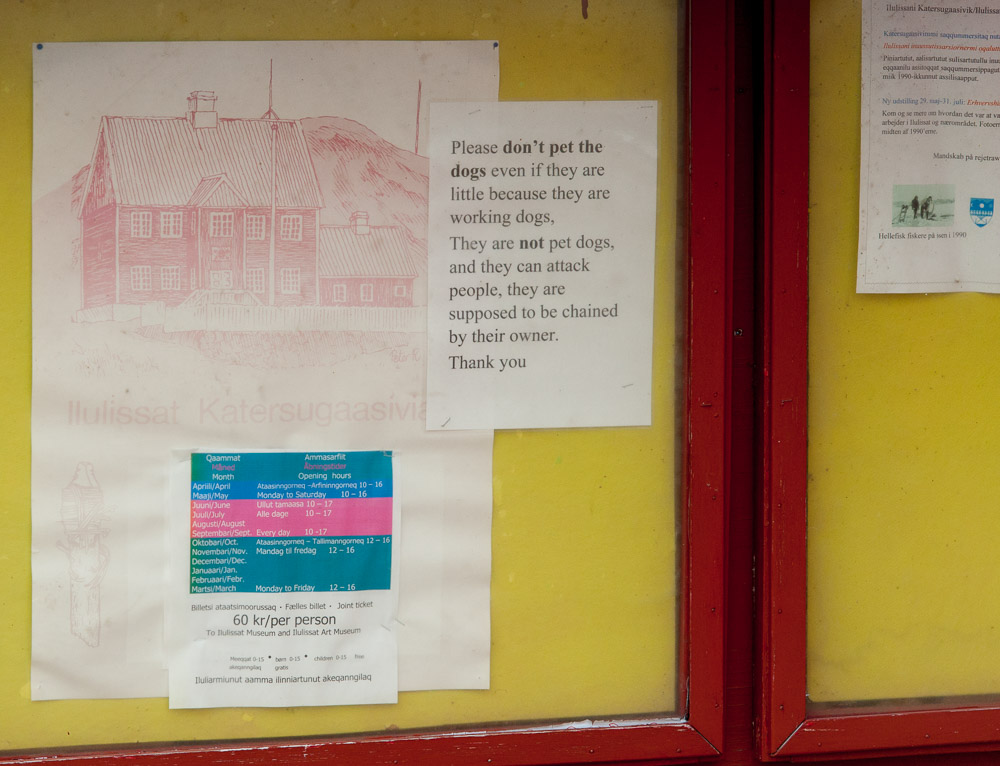 Ilulissat Katersugaasivia
Please don't pet the
dogs even if they are
little because they are
working dogs,
They are not pet dogs,
and they can attack
people, they are
supposed to be chained
by their owner.
Thank you
Qaammat Ammasarfiit
Måned Åbningstider
Month Opening hours
Apriili/April Ataasinngorneq -Arfininngorneq 10 – 16
Maaji/May Monday to Saturday 10 – 16
Juuni/June Ullut tamaasa 10 – 17
Juuli/July Alle dage 10 – 17
Augusti/August
Septembari/Sept. Every day 10 -17
Oktobari/Oct. Ataasinngorneq – Tallimanngorneq 12 – 16
Novembari/Nov. Mandag til fredag 12 – 16
Decembari/Dec.
Januaari/Jan.
Februaari/Febr.
Martsi/March Monday to Friday 12 – 16
Billetsi ataatsimoorussaq • Fælles billet • Joint ticket
60 kr/per person
To Ilulissat Museum and Ilulissat Art Museum
Meeqqat 0-15 • børn 0-15 • children 0-15 free
akeqanngilaq gratis
Iluliarmiunut aamma ilinniartunut akeqanngilaq
Ilulissani Katersugaasivik/Ilulissa
Katersugaasivimmi saqqummersitaq nuta
Piniartutut, aalisartutut sulisartutullu inuu
miik 1990-ikkunnut assilisaapput.
Ny udstilling 29. maj-31. juli: Erhvervshi
Kom og se mere om hvordan det var at va
arbejder i Ilulissat og nærområdet. Fotoer
midten af 1990'erne.
Mandskab på rejetraw
Hellefisk fiskere på isen i 1990